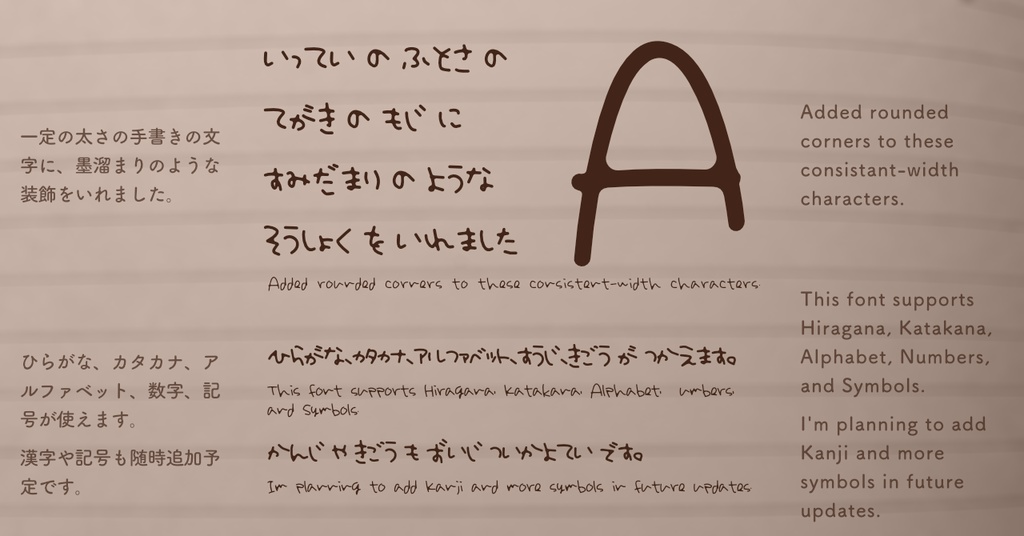 一定の太さの手書きの文
字に、墨溜まりのような
装飾をいれました。
ひらがな、カタカナ、ア
ルファベット、数字、記
号が使えます。
漢字や記号も随時追加予
定です。
いってい の ふとさ の
てがき の もじ に
すみだまり の ような
そうしょく を いれました
A
Added rounded corners to these consistent-width characters.
ひらがな、カタカナ、アルファベット、すうじ、きごう が つかえます。
This font supports Hiragana, Katakana, Alphabet, umbers,
and Symbols.
かんじ や きごう も ずいじ ついかよてい です。
Im planning to add Kanji and more symbols in future updates.
Added rounded
corners to these
consistant-width
characters.
This font supports
Hiragana, Katakana,
Alphabet, Numbers,
and Symbols.
I'm planning to add
Kanji and more
symbols in future
updates.